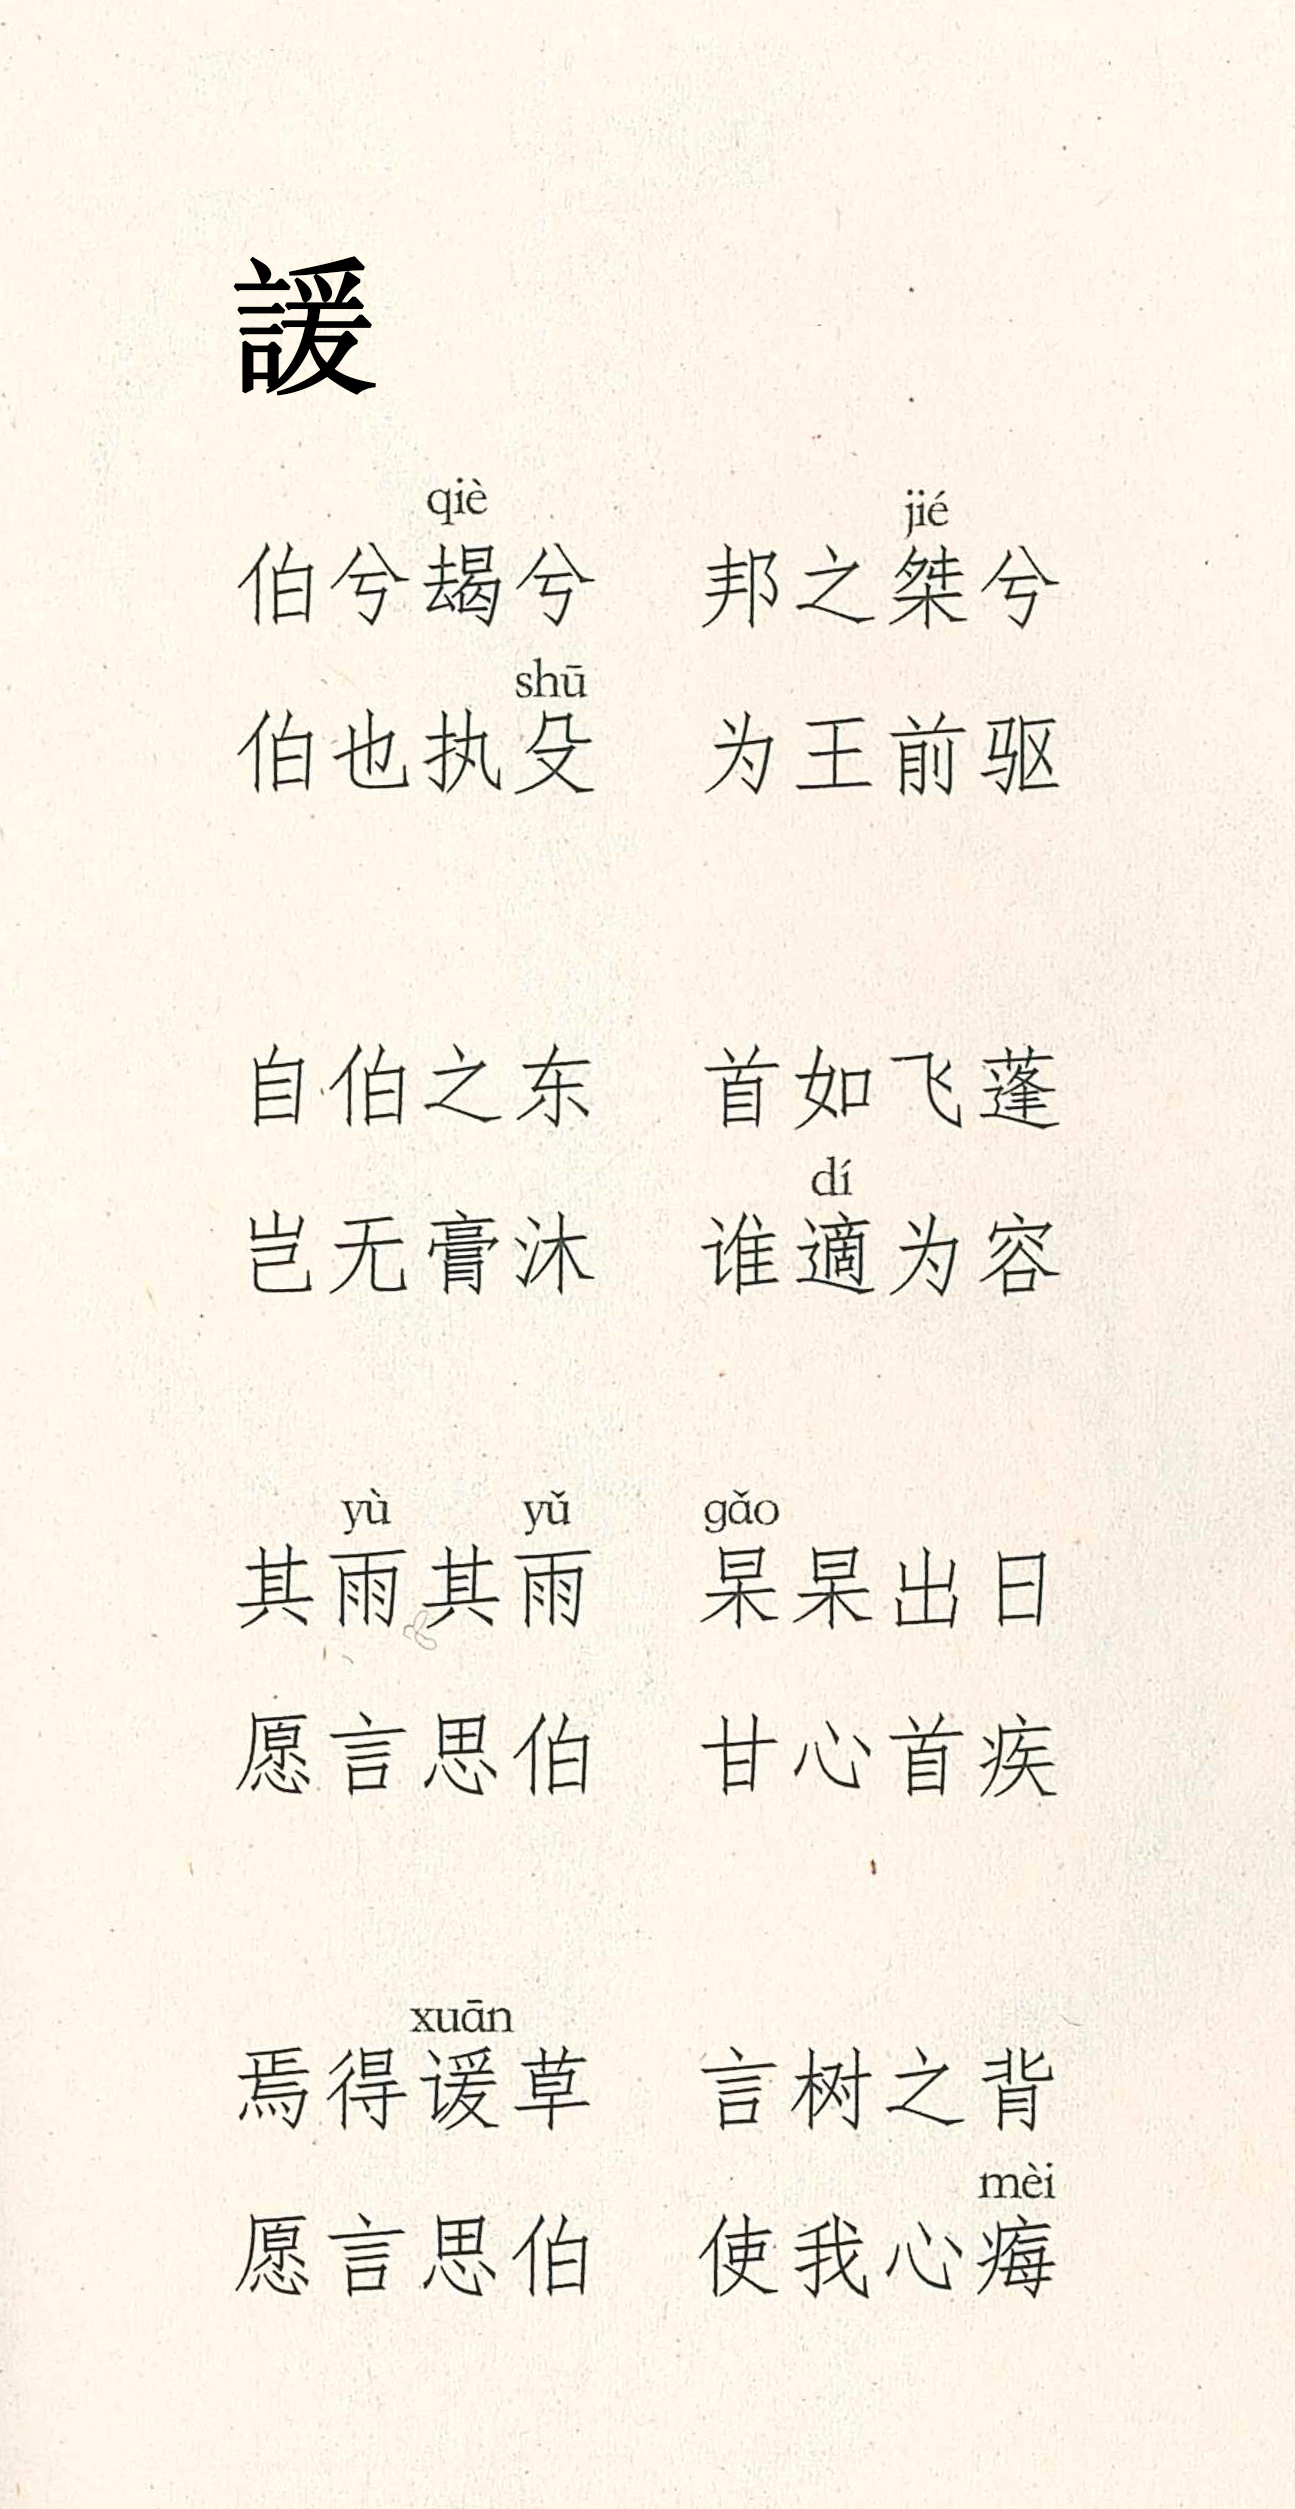 諼
qiè jié
伯兮朅兮 邦之桀兮
shū
伯也执殳 为王前驱
自伯之东 首如飞蓬
dí
岂无膏沐 谁適为容
yù yǔ gǎo
其雨其雨 杲杲出日
愿言思伯 甘心首疾
xuān
焉得谖草 言树之背
mèi
愿言思伯 使我心痗